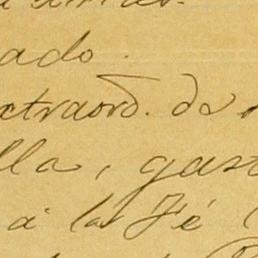 ado.
xtraord. da
lla, gast
á la Fé (